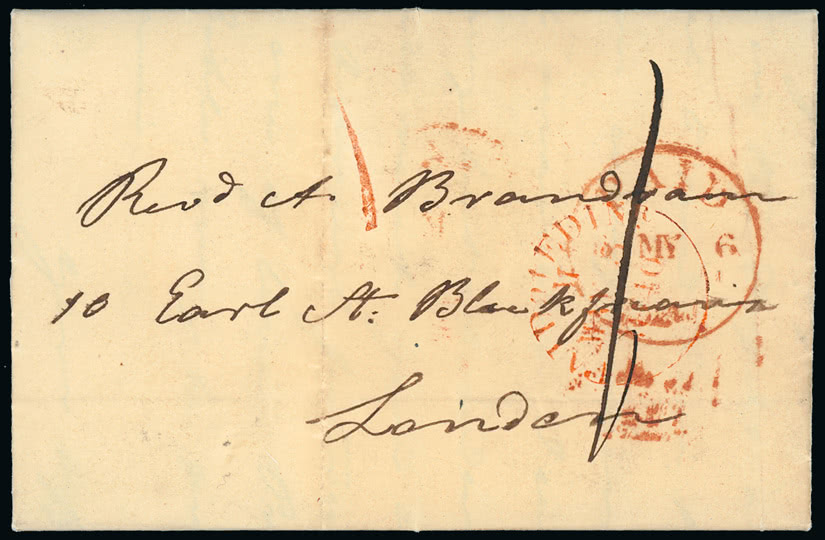 Revd A. Brandram
10 Earl St. Blackfriars
London
1
1
PAID
MY 6